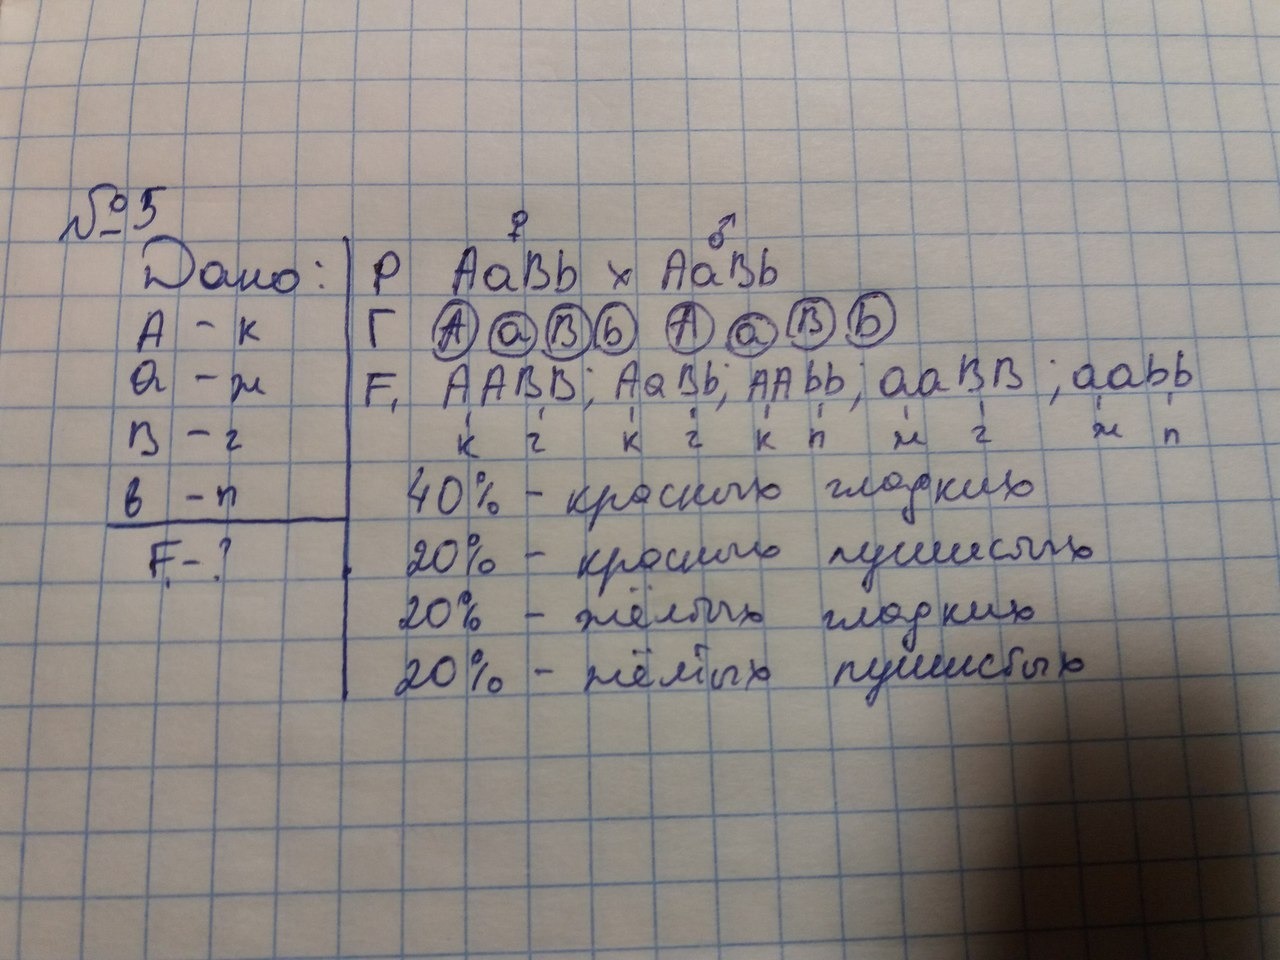 №5
Дано:
A - к
a - ж
B - г
b - п
F₁ - ?
♀ ♂
P AaBb x AaBb
Г A a B b A a B b
F₁ AABB; AaBb; AAbb; aaBB; aabb
к г к г к п ж г ж п
40% - красных гладких
20% - красных пушистых
20% - жёлтых гладких
20% - жёлтых пушистых